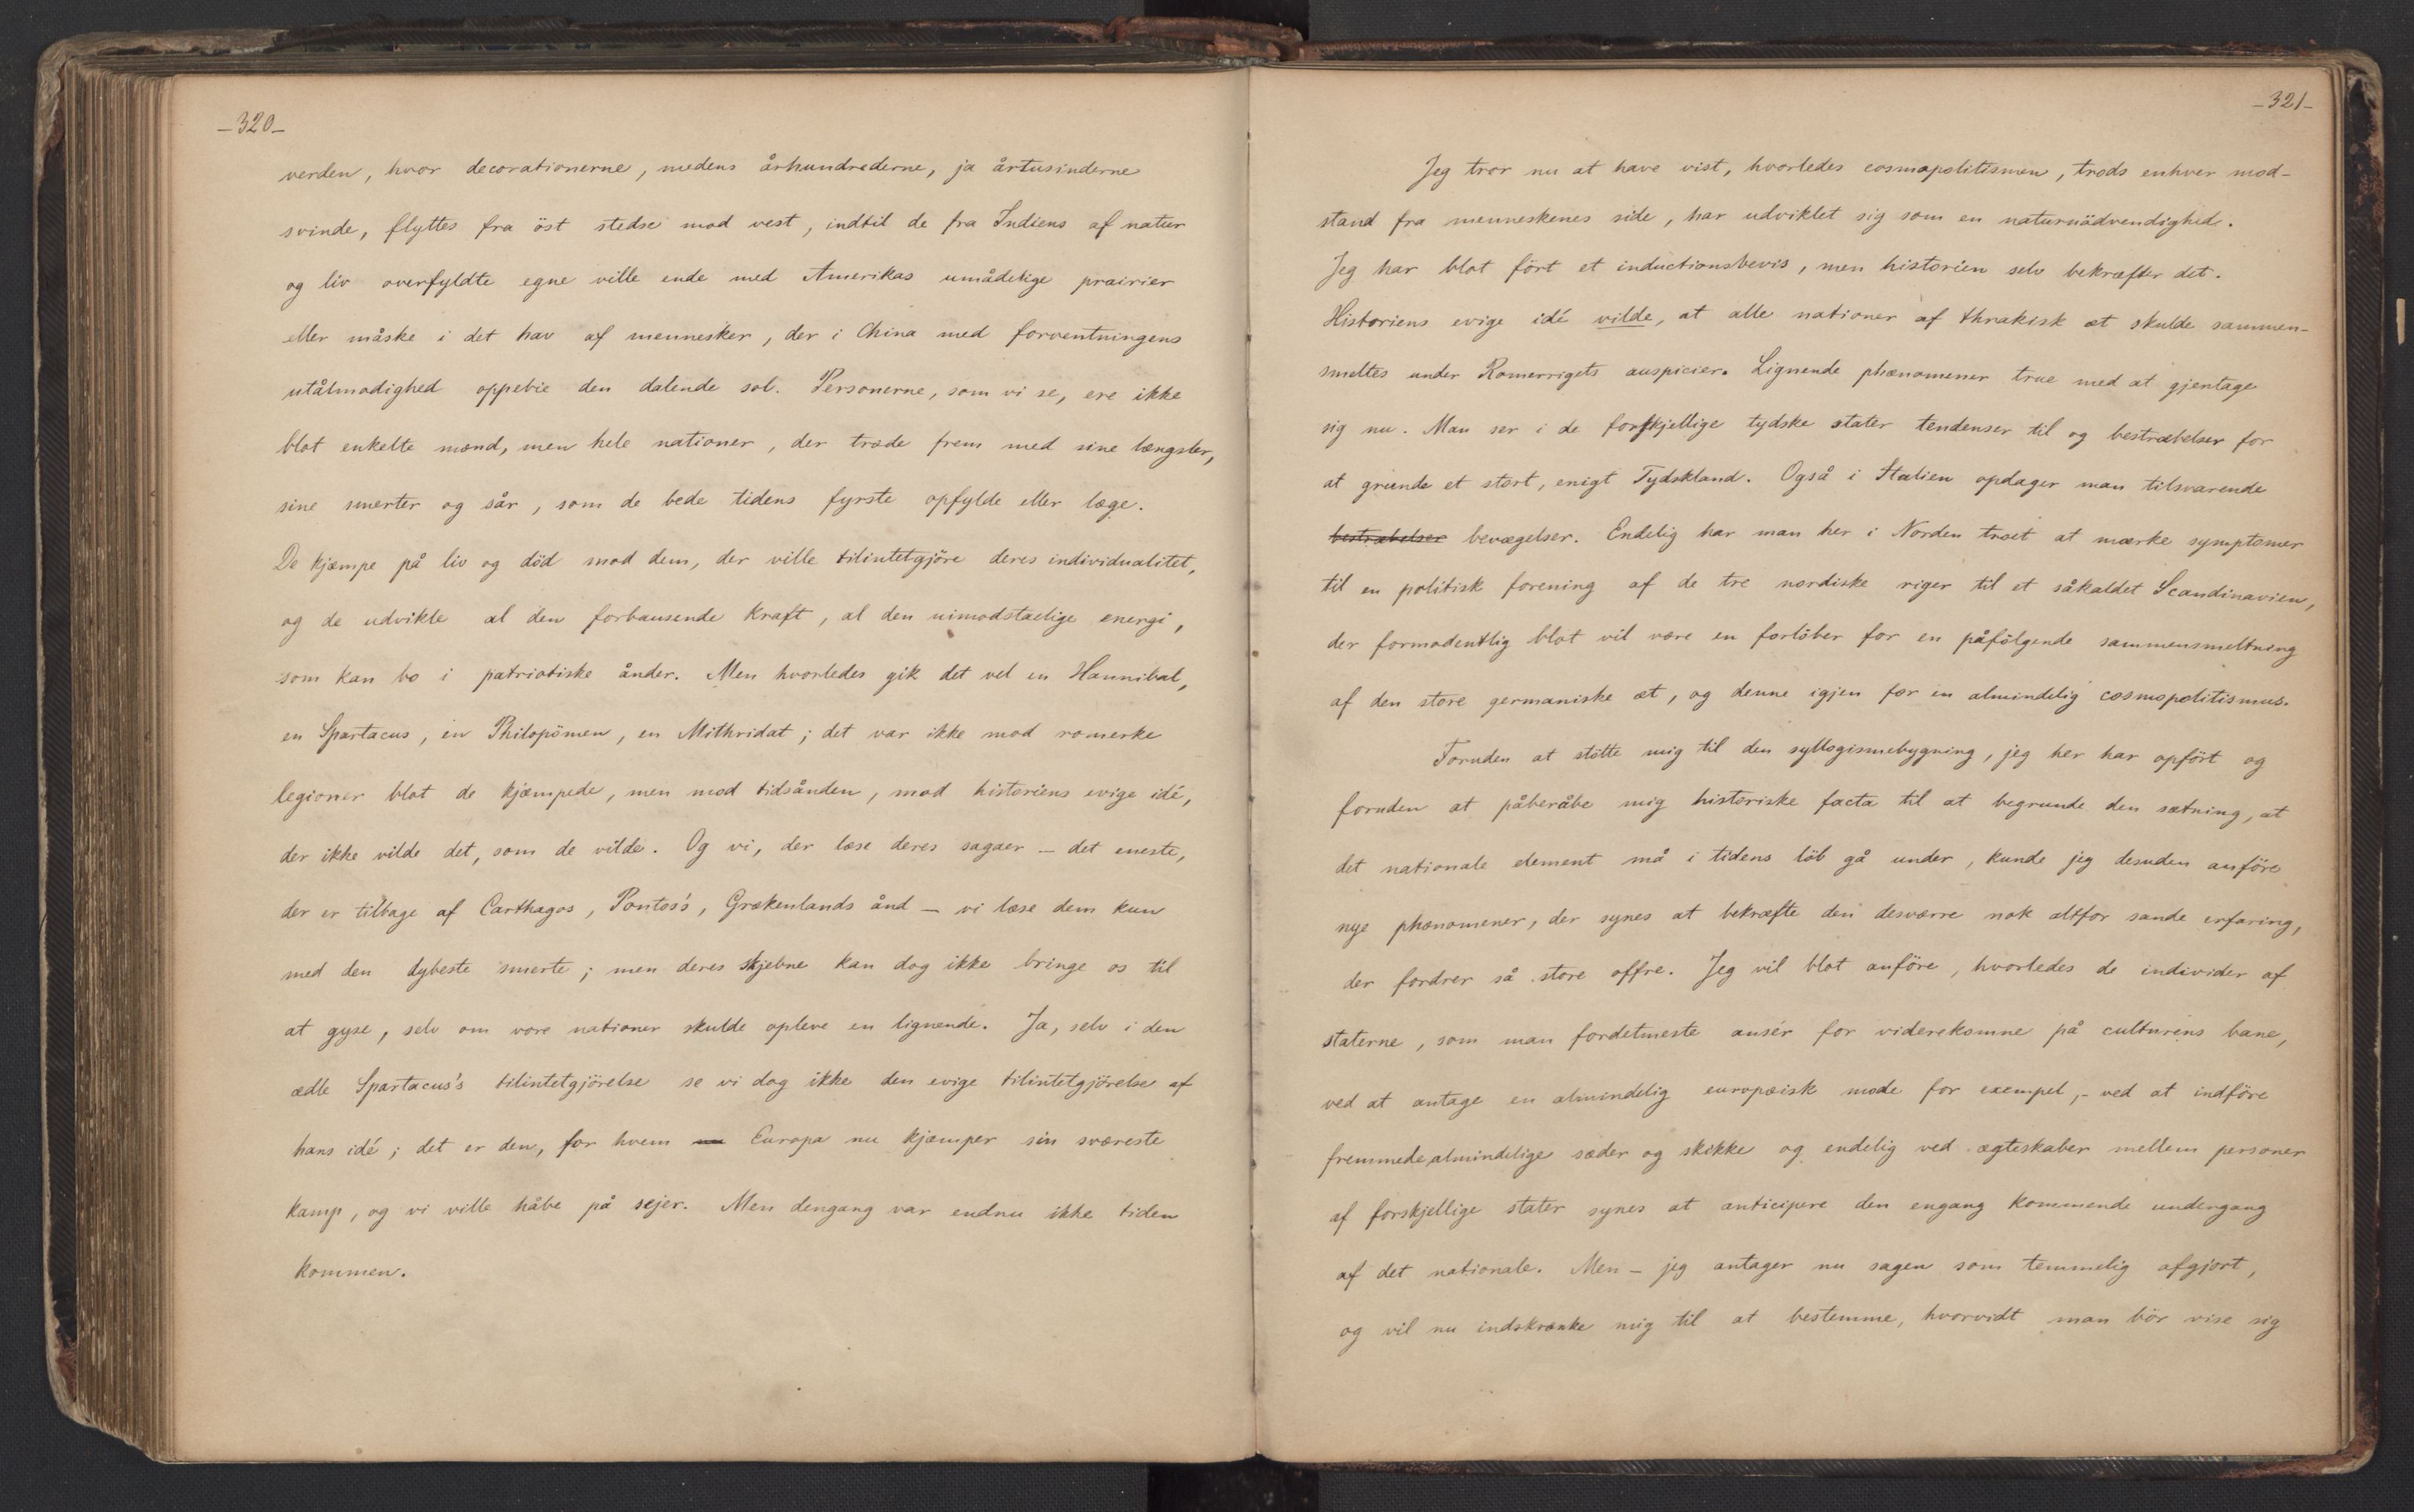 -320-
verden, hvor decorationerne, medens århundrederne, ja årtusinderne
svinde, flyttes fra öst stedse mod vest, indtil de fra Indiens af natur
og liv overfyldte egne ville ende med Amerikas umådelige prairier
eller måske i det hav af mennesker, der i China med forventningens
utålmodighed oppebie den dalende sol. Personerne, som vi se, ere ikke
blot enkelte mænd, men hele nationer, der træde frem med sine længsler,
sine smerter og sår, som de bede tidens fyrste opfylde eller læge.
De kjæmpe på liv og död mod dem, der ville tilintetgjöre deres individualitet,
og de udvikle al den forbausende kraft, al den uimodstaelige energi,
som kan bo i patriotiske ånder. Men hvorledes gik det vel en Hannibal,
en Spartacus, en Philopömen, en Mithridat; det var ikke mod romerke
legioner blot de kjæmpede, men mod tidsånden, mod historiens evige idé,
der ikke vilde det, som de vilde. Og vi, der læse deres sagaer – det eneste,
der er tilbage af Carthagos, Pontos's, Grækenlands ånd – vi læse dem kun
med den dybeste smerte; men deres skjebne kan dog ikke bringe os til
at gyse, selv om vore nationer skulde opleve en lignende. Ja, selv i den
ædle Spartacus's tilintetgjörelse se vi dog ikke den evige tilintetgjörelse af
hans idé; det er den, for hvem nu Europa nu kjæmper sin sværeste
kamp, og vi ville håbe på sejer. Men dengang var endnu ikke tiden
kommen.
-321-
Jeg tror nu at have vist, hvorledes cosmopolitismen, trods enhver mod-
stand fra menneskenes side, har udviklet sig som en naturnödvendighed.
Jeg har blot fört et inductionsbevis, men historien selv bekræfter det.
Historiens evige idé vilde, at alle nationer af thrakisk æt skulde sammen-
smeltes under Romerrigets auspicier. Lignende phænomener true med at gjentage
sig nu. Man ser i de forskjellige tydske stater tendenser til og bestræbelser for
at grunde et stort, enigt Tydskland. Også i Italien opdager man tilsvarende
bestræbelser bevægelser. Endelig har man her i Norden troet at mærke symptomer
til en politisk forening af de tre nordiske riger til et såkaldet Scandinavien,
der formodentlig blot vil være en forlöber for en påfölgende sammensmeltning
af den store germaniske æt, og denne igjen for en almindelig cosmopolitismus.
Foruden at stötte mig til den syllogismebygning, jeg her har opfört og
foruden at påberåbe mig historiske facta til at begrunde den sætning, at
det nationale element må i tidens löb gå under, kunde jeg desuden anföre
nye phænomener, der synes at bekræfte den desværre nok altfor sande erfaring,
der fordrer så store offre. Jeg vil blot anföre, hvorledes de individer af
staterne, som man fordetmeste ansér for viderekomne på culturens bane,
ved at antage en almindelig europæisk mode for exempel, - ved at indföre
fremmede, almindelige sæder og skikke og endelig ved ægteskaber mellem personer
af forskjellige stater synes at anticipere den engang kommende undergang
af det nationale. Men – jeg antager nu sagen som temmelig afgjort,
og vil nu indskrænke mig til at bestemme, hvorvidt man bör vise sig